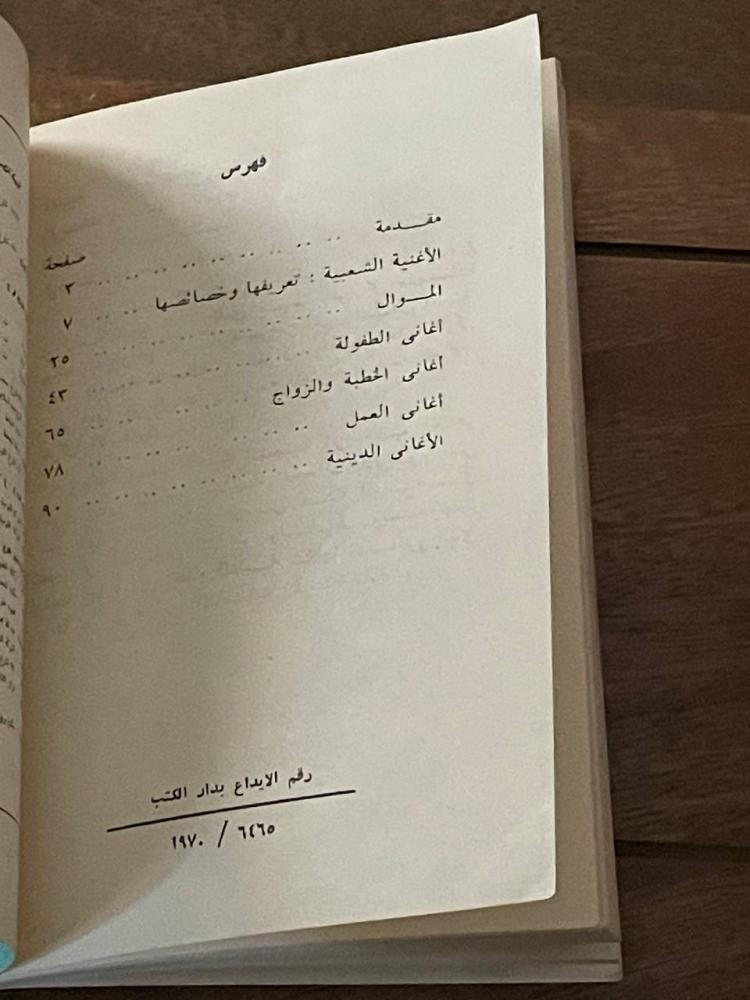 فهرس
صفحة
مقــدمة .. .. .. .. .. .. .. .. .. ٣
الأغنية الشعبية : تعريفها وخصائصها .. .. ٧
المــوال .. .. .. .. .. .. .. .. .. ٢٥
أغانى الطفولة .. .. .. .. .. .. .. .. ٤٣
أغانى الخطبة والزواج .. .. .. .. .. .. ٦٥
أغانى العمل .. .. .. .. .. .. .. .. ٧٨
الأغانى الدينية .. .. .. .. .. .. .. .. ٩٠
رقم الايداع بدار الكتب
٦٤٦٥ / ١٩٧٠